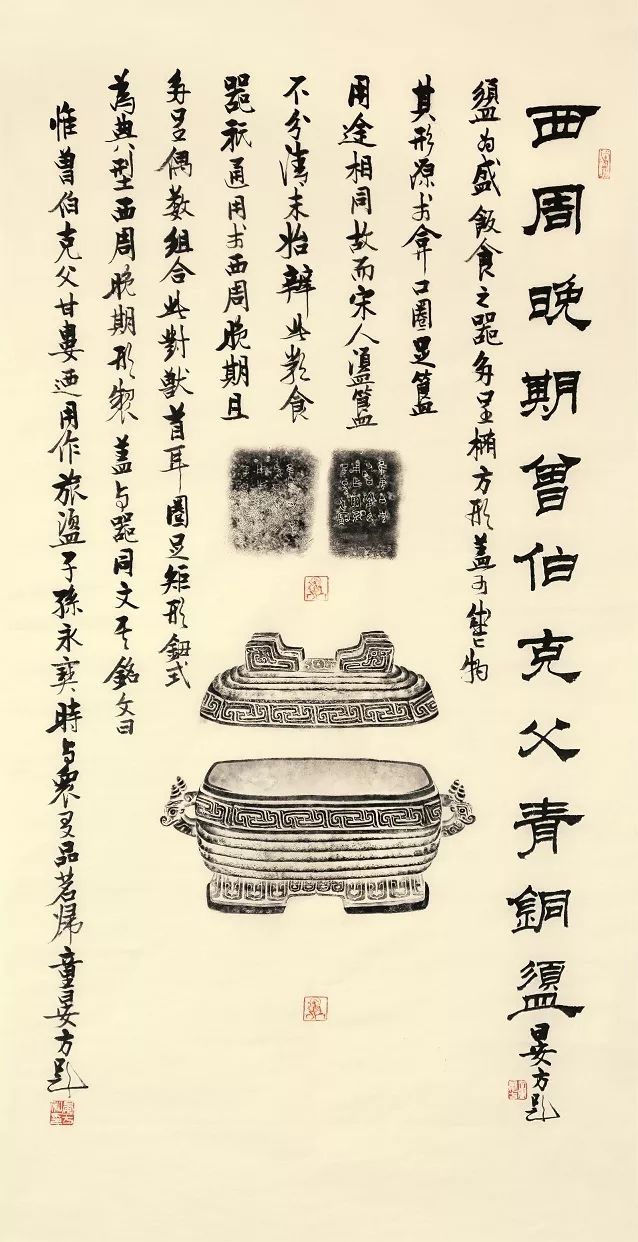 西周晚期曾伯克父青銅盨
晏方题
盨为盛飯食之器多呈橢方形盖可盛物
其形源于弇口圈足簋
用途相同故而宋人盨簋
不分清末始辨此类食
器衹通用于西周晚期且
多呈偶数組合此對獸首耳圈足矩形鈕式
為典型西周晚期形製盖与器同文其銘文曰
惟曾伯克父甘婁迺用作旅盨子孫永寶時与衆友品茗歸童晏方题